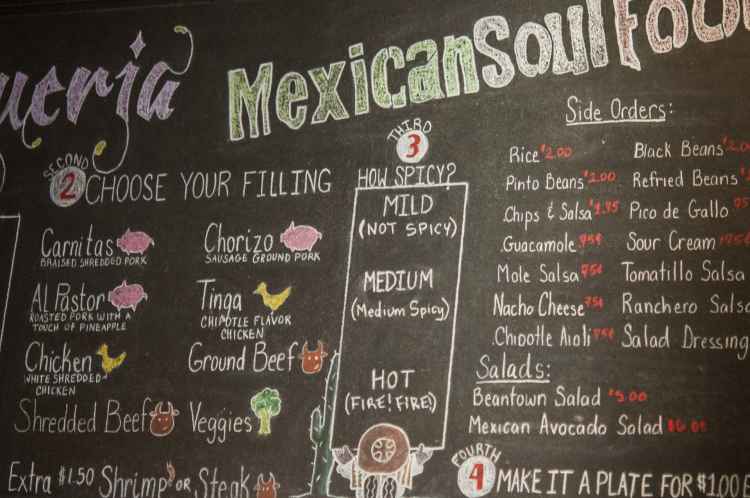 ueria
Mexican Soul Food
SECOND
2 CHOOSE YOUR FILLING
Carnitas
BRAISED SHREDDED PORK
Chorizo
SAUSAGE GROUND PORK
Al Pastor
ROASTED PORK WITH A
TOUCH OF PINEAPPLE
Tinga
CHIPOTLE FLAVOR
CHICKEN
Chicken
WHITE SHREDDED
CHICKEN
Ground Beef
Shredded Beef
Veggies
Extra $1.50 Shrimp OR Steak
THIRD
3
HOW SPICY?
MILD
(NOT SPICY)
MEDIUM
(Medium Spicy)
HOT
(FIRE! FIRE!)
Side Orders:
Rice $2.00
Black Beans
Pinto Beans $2.00
Refried Beans
Chips & Salsa
Pico de Gallo
Guacamole 95¢
Sour Cream
Mole Salsa 75¢
Tomatillo Salsa
Nacho Cheese 75¢
Ranchero Salsa
Chipotle Aioli 75¢
Salad Dressing
Salads:
Beantown Salad $5.00
Mexican Avocado Salad
FOURTH
4 MAKE IT A PLATE FOR $1.00